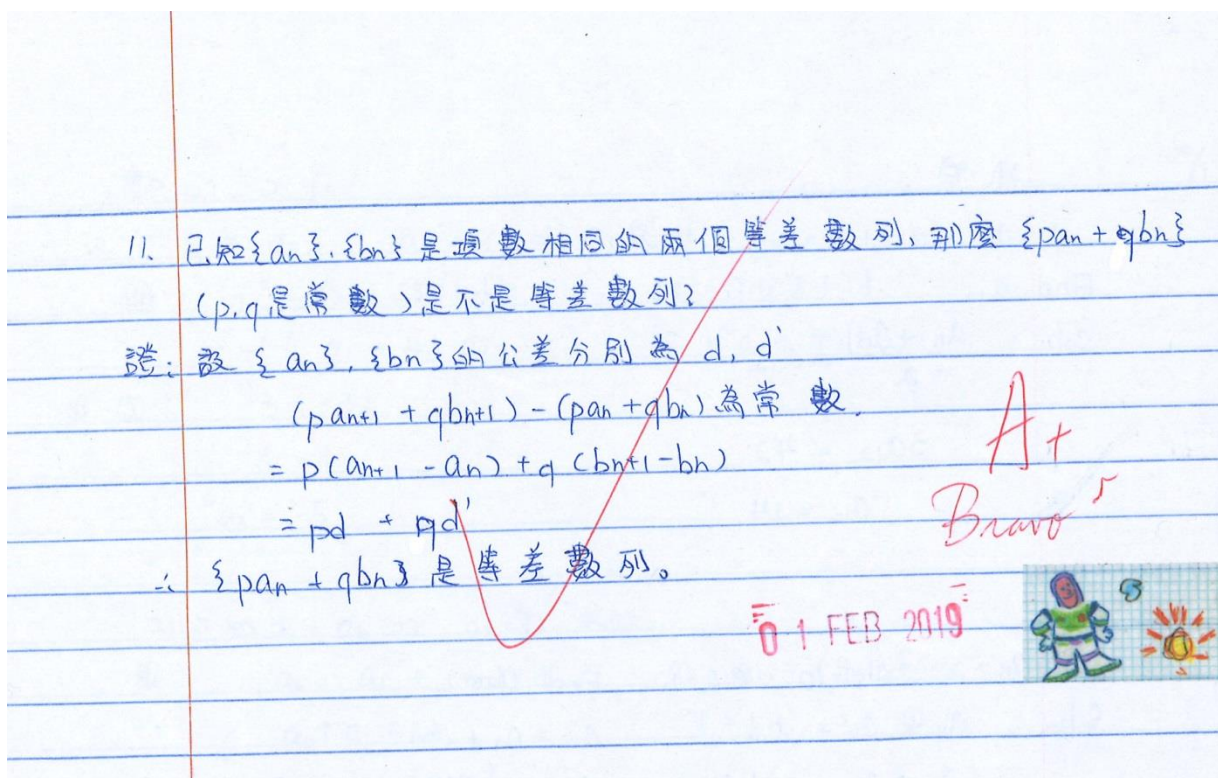 11. 已知{an}.{bn}是項數相同的兩個等差數列,那麼{pan+qbn}
(p.q是常數)是不是等差數列?
證:設{an},{bn}的公差分別為d, d'
(pan+1 + qbn+1) - (pan + qbn)為常數.
= p(an+1 - an) + q (bn+1 - bn)
= pd + qd'
∴ {pan + qbn}是等差數列。
A+
Bravo
0 1 FEB 2019